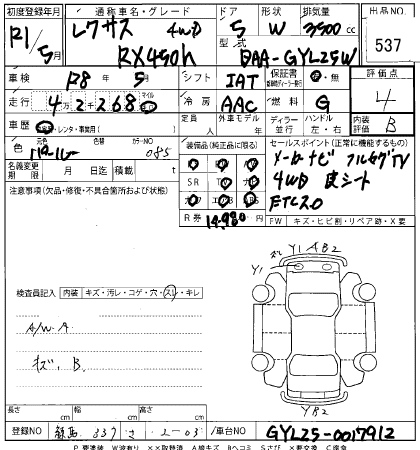 初度登録年月 通称車名・グレード ドア 形状 排気量 出品NO.
R1/5月 レクサス 4WD 5 W 3500cc
RX450h 型式 DAA-GYL25W 537
車検 R8年5月 シフト IAT 保証書 有・無 評価点
走行 42268 マイル 冷房 AAC 燃料 G 4
車歴 レンタ・事業用( ) 定員 人 外車モデル 年 ディーラー 並行 ハンドル 左・右 内装評価 B
色 元色 カラーNO 085 装備品(純正品に限る) セールスポイント(正常に機能するもの)
名義変更期限 月 日 積載 t メーカーナビ フルセグTV
SR 4WD 皮シート
注意事項(欠品・修復・不具合箇所および状態) ETC2.0
R券 14,980 FW キズ・ヒビ割・リペア跡・X要
Y1 A B2
Y1
検査員記入 内装 キズ・汚レ・コゲ・穴・スレ・キレ
A/W.A
キズ、B.
YB2
長さ cm 幅 cm 高さ cm
登録NO 337 さ 2-03 車台NO GYL25-0017912
P要塗装 W波有り ××取替済 A線キズ Bヘコミ Sさび X要交換 C腐食